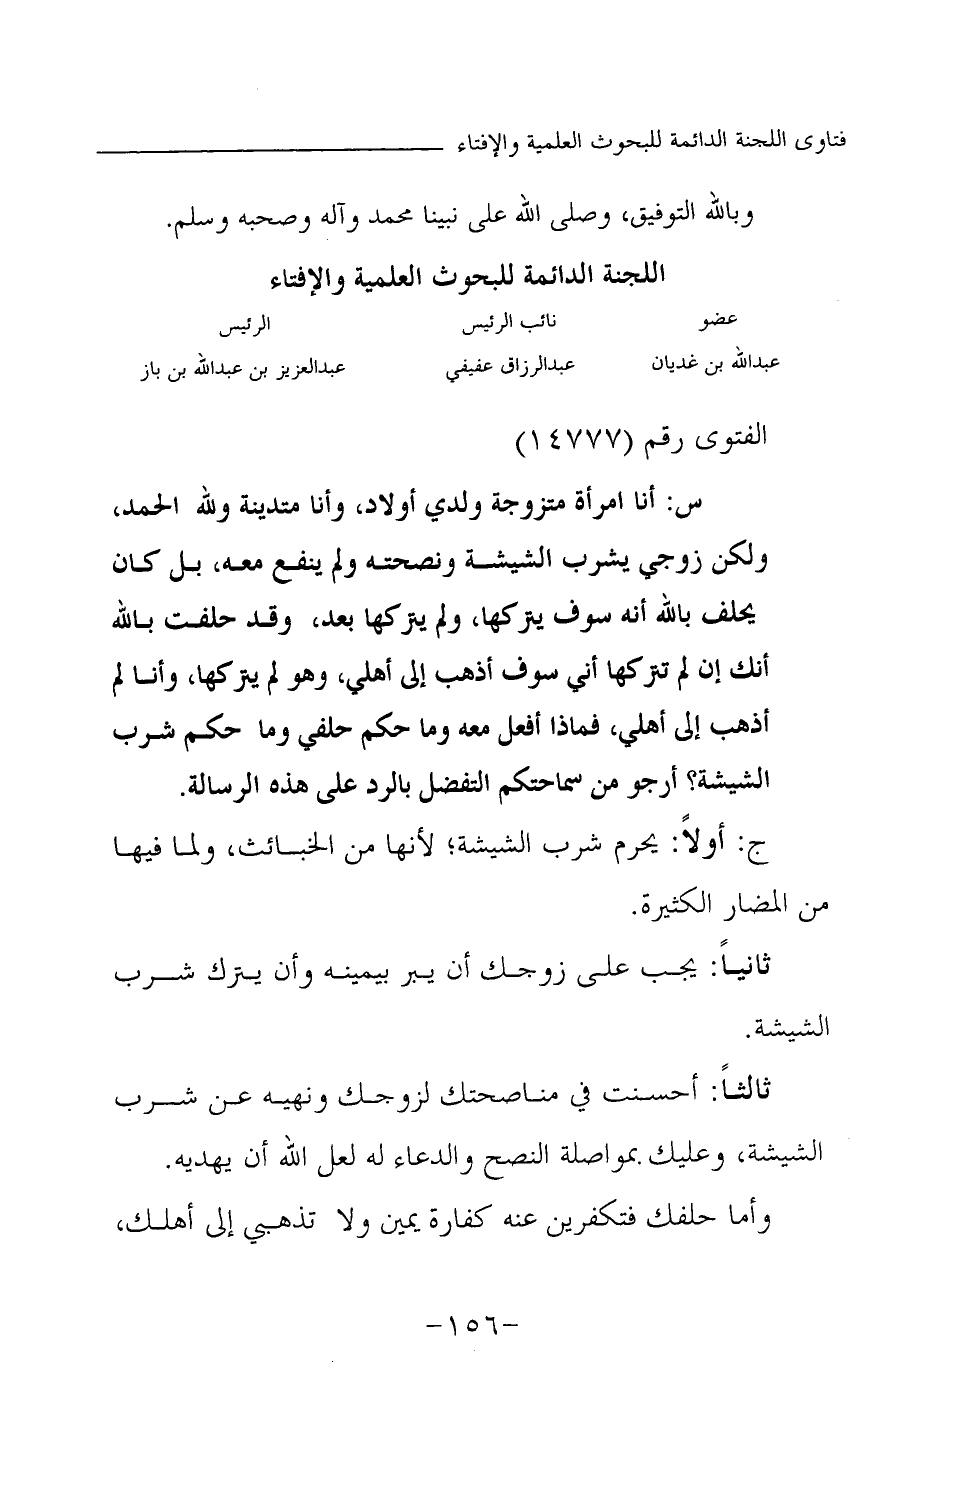 فتاوى اللجنة الدائمة للبحوث العلمية والإفتاء
وبالله التوفيق، وصلى الله على نبينا محمد وآله وصحبه وسلم.
اللجنة الدائمة للبحوث العلمية والإفتاء
عضو نائب الرئيس الرئيس
عبدالله بن غديان عبدالرزاق عفيفي عبدالعزيز بن عبدالله بن باز
الفتوى رقم (١٤٧٧٧)
س: أنا امرأة متزوجة ولدي أولاد، وأنا متدينة ولله الحمد،
ولكن زوجي يشرب الشيشة ونصحته ولم ينفع معه، بل كان
يحلف بالله أنه سوف يتركها، ولم يتركها بعد، وقد حلفت بالله
أنك إن لم تتركها أني سوف أذهب إلى أهلي، وهو لم يتركها، وأنا لم
أذهب إلى أهلي، فماذا أفعل معه وما حكم حلفي وما حكم شرب
الشيشة؟ أرجو من سماحتكم التفضل بالرد على هذه الرسالة.
ج: أولاً: يحرم شرب الشيشة؛ لأنها من الخبائث، ولما فيها
من المضار الكثيرة.
ثانياً: يجب على زوجك أن يبر بيمينه وأن يترك شرب
الشيشة.
ثالثاً: أحسنت في مناصحتك لزوجك ونهيه عن شرب
الشيشة، وعليك بمواصلة النصح والدعاء له لعل الله أن يهديه.
وأما حلفك فتكفرين عنه كفارة يمين ولا تذهبي إلى أهلك،
-١٥٦-